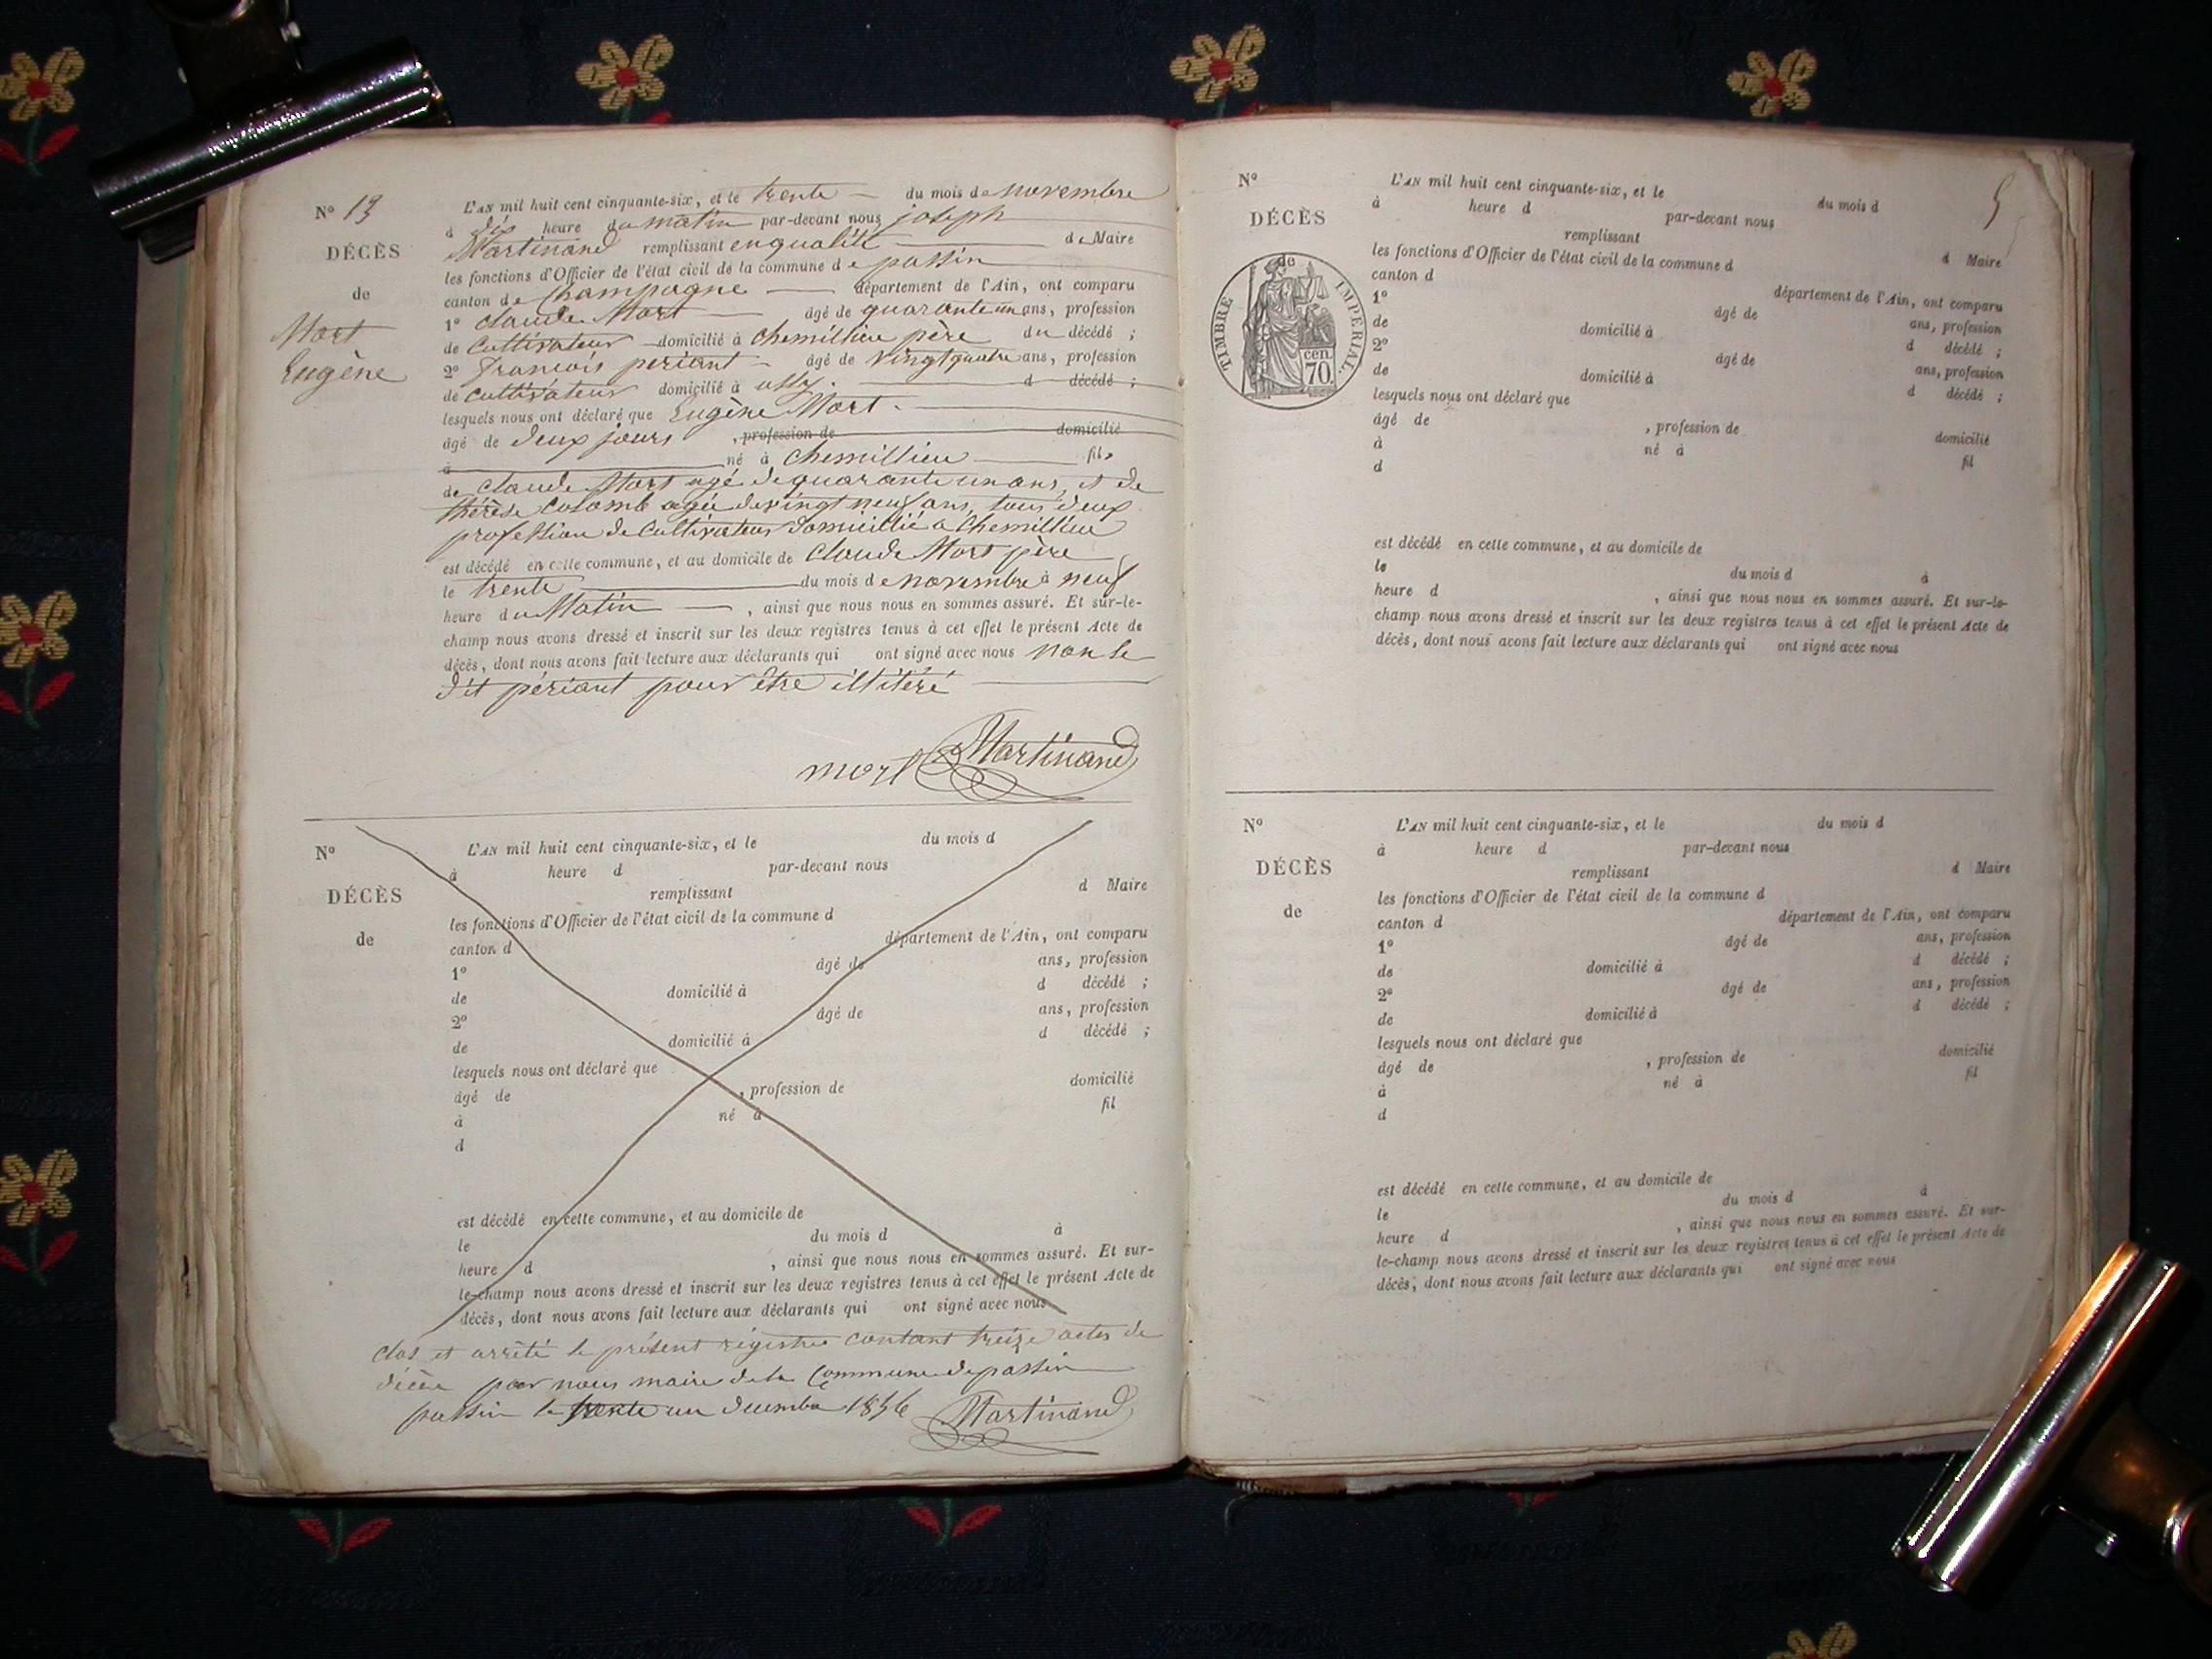 Nº 13
DÉCÈS
de
Mort
Eugène
L'AN mil huit cent cinquante-six, et le trente du mois de novembre
à dix heure du matin par-devant nous joseph
Martinand remplissant en qualité de Maire
les fonctions d'Officier de l'état civil de la commune de passin
canton de Champagne département de l'Ain, ont comparu
1º claude Mort âgé de quarante un ans, profession
de Cultivateur domicilié à chemillieu père du décédé ;
2º François periant âgé de vingt quatre ans, profession
de Cultivateur domicilié à d décédé ;
lesquels nous ont déclaré que Eugène Mort
âgé de deux jours , profession de domicilié
à né à chemillieu fils
de claude Mort agé de quarante un ans, et de
thérèse Colomb agée de vingt neuf ans, tous deux
profession de Cultivateur domicillié a Chemillieu
est décédé en cette commune, et au domicile de claude Mort père
le trente du mois de novembre à neuf
heure du Matin , ainsi que nous nous en sommes assuré. Et sur-le-
champ nous avons dressé et inscrit sur les deux registres tenus à cet effet le présent Acte de
décès, dont nous avons fait lecture aux déclarants qui ont signé avec nous non le
dit périant pour être illitéré
mort Martinand
Nº
DÉCÈS
de
L'AN mil huit cent cinquante-six, et le du mois d
à heure d par-devant nous
remplissant d Maire
les fonctions d'Officier de l'état civil de la commune d
canton d département de l'Ain, ont comparu
1º âgé de ans, profession
de domicilié à d décédé ;
2º âgé de ans, profession
de domicilié à d décédé ;
lesquels nous ont déclaré que
âgé de , profession de domicilié
à né à fil
d
est décédé en cette commune, et au domicile de
le du mois d à
heure d , ainsi que nous nous en sommes assuré. Et sur-
le-champ nous avons dressé et inscrit sur les deux registres tenus à cet effet le présent Acte de
décès, dont nous avons fait lecture aux déclarants qui ont signé avec nous
clos et arrêté le présent régistre contant treize actes de
décès par nous maire de la Commune de passin
passin le trente un decembre 1856 Martinand
5
Nº
DÉCÈS
de
TIMBRE IMPERIAL.
cen.
70.
L'AN mil huit cent cinquante-six, et le du mois d
à heure d par-devant nous
remplissant d Maire
les fonctions d'Officier de l'état civil de la commune d
canton d département de l'Ain, ont comparu
1º âgé de ans, profession
de domicilié à d décédé ;
2º âgé de ans, profession
de domicilié à d décédé ;
lesquels nous ont déclaré que
âgé de , profession de domicilié
à né à fil
d
est décédé en cette commune, et au domicile de
le du mois d à
heure d , ainsi que nous nous en sommes assuré. Et sur-le-
champ nous avons dressé et inscrit sur les deux registres tenus à cet effet le présent Acte de
décès, dont nous avons fait lecture aux déclarants qui ont signé avec nous
Nº
DÉCÈS
de
L'AN mil huit cent cinquante-six, et le du mois d
à heure d par-devant nous
remplissant d Maire
les fonctions d'Officier de l'état civil de la commune d
canton d département de l'Ain, ont comparu
1º âgé de ans, profession
de domicilié à d décédé ;
2º âgé de ans, profession
de domicilié à d décédé ;
lesquels nous ont déclaré que
âgé de , profession de domicilié
à né à fil
d
est décédé en cette commune, et au domicile de
le du mois d à
heure d , ainsi que nous nous en sommes assuré. Et sur-
le-champ nous avons dressé et inscrit sur les deux registres tenus à cet effet le présent Acte de
décès, dont nous avons fait lecture aux déclarants qui ont signé avec nous